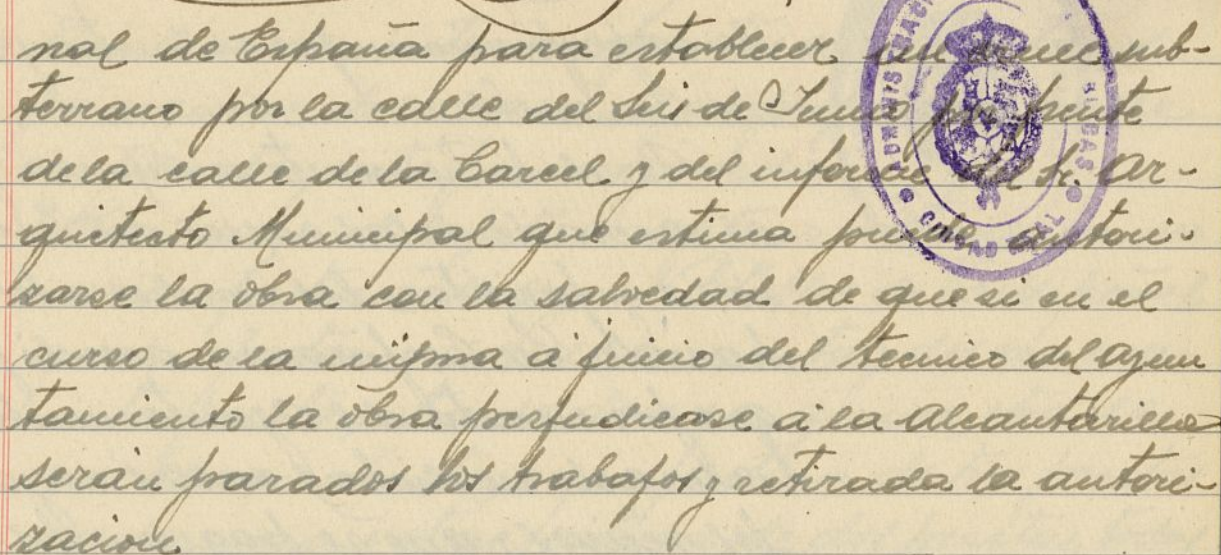 nal de España para establecer un sub-
terrano por la calle del Seis de Junio por frente
de la calle de la Carcel y del informe del Sr. Ar-
quitecto Municipal que estima puede autori-
zarse la obra con la salvedad de que si en el
curso de la misma a juicio del tecnico del ayun
tamiento la obra perjudicase a la Alcantarilla
serán parados los trabajos y retirada la autori-
zacion
CIUDAD REAL